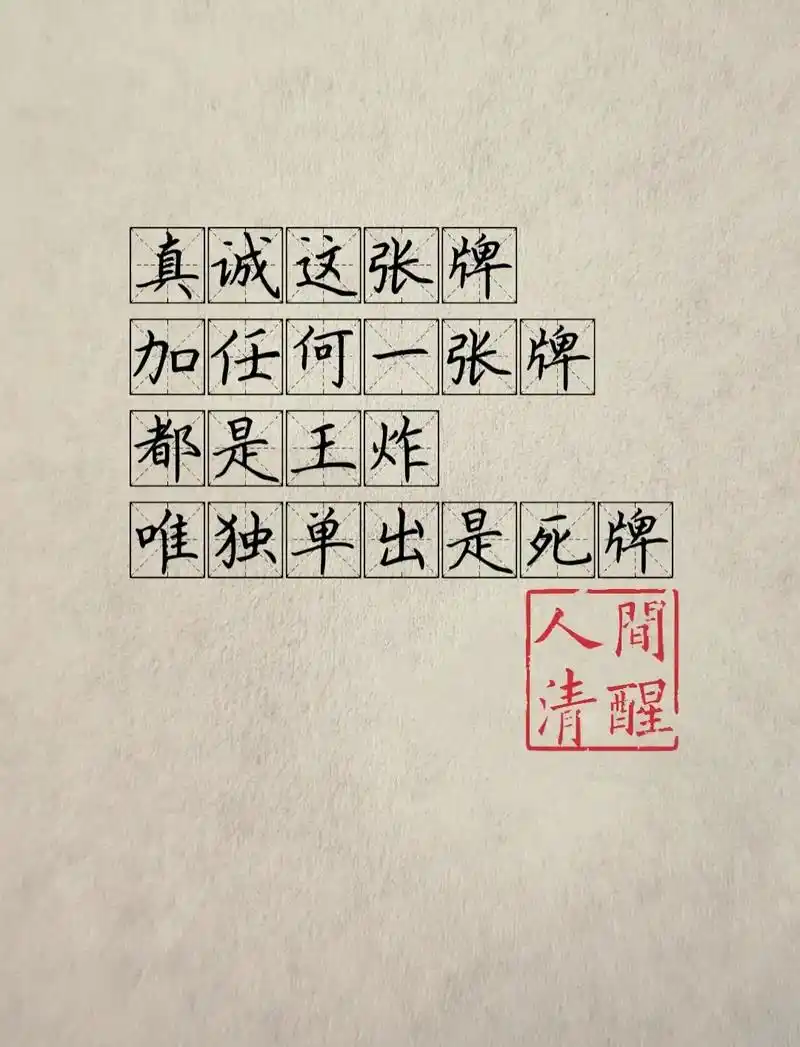 真诚这张牌
加任何一张牌
都是王炸
唯独单出是死牌
人間
清醒